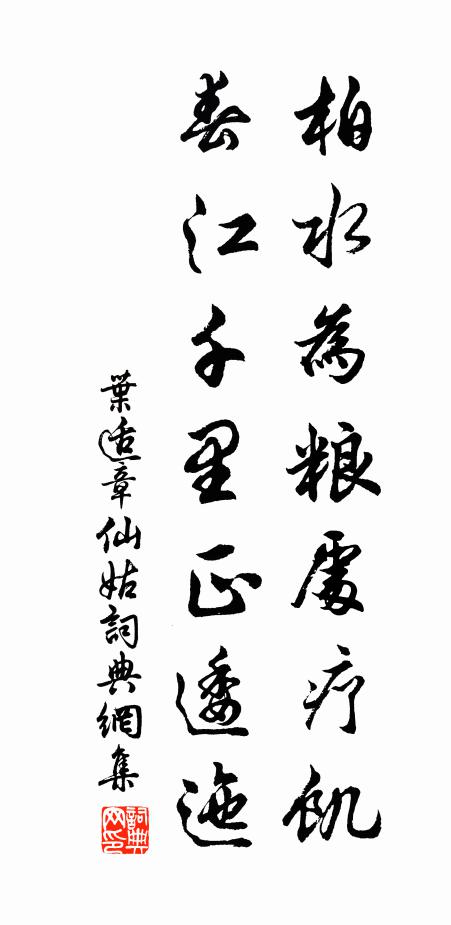 柏水為粮處疗飢
春江千里正逶迤
葉适章仙姑詞典網集
詞典网印